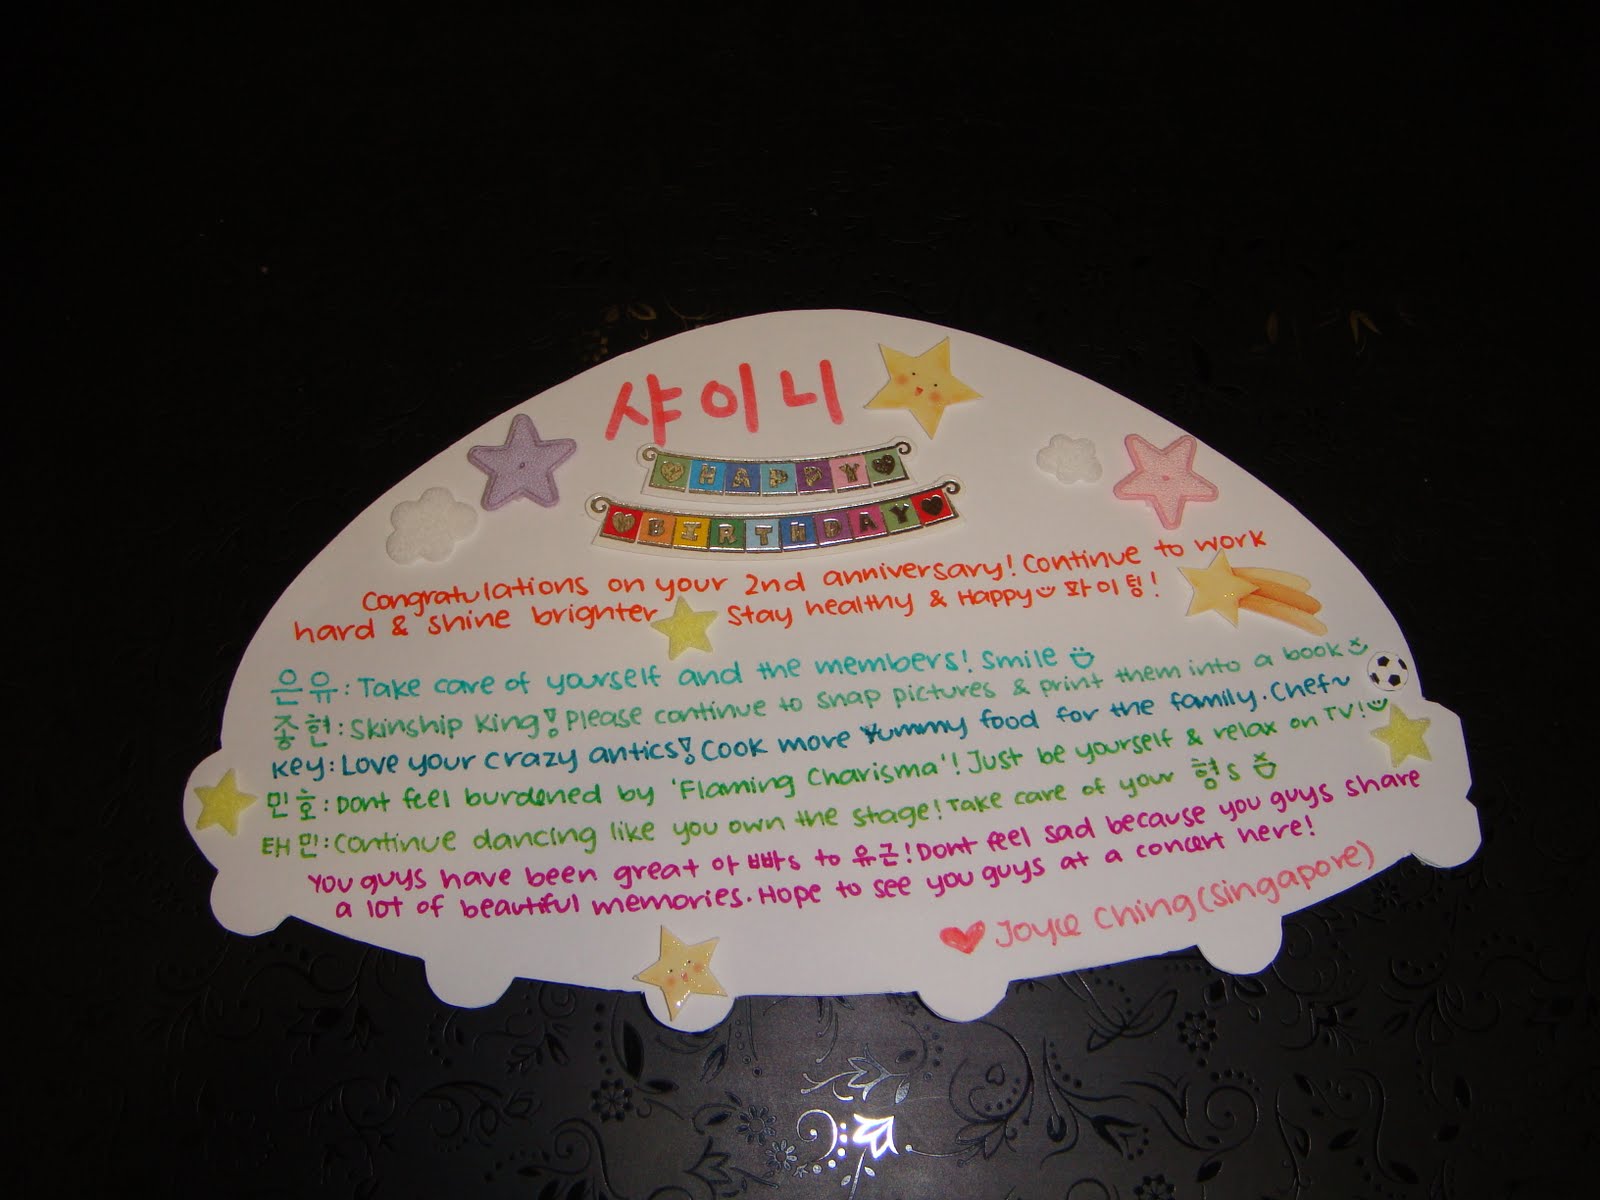 샤이니
HAPPY
BIRTHDAY
Congratulations on your 2nd anniversary! Continue to work
hard & shine brighter Stay healthy & Happy 파이팅!
은유: Take care of yourself and the members! Smile
종현: Skinship King! Please continue to snap pictures & print them into a book
Key: Love your crazy antics! Cook more Yummy food for the family. Chef~
민호: Dont feel burdened by 'Flaming Charisma'! Just be yourself & relax on TV!
태민: Continue dancing like you own the stage! Take care of your 형s
You guys have been great 아빠s to 유근! Dont feel sad because you guys share
a lot of beautiful memories. Hope to see you guys at a concert here!
Joyce Ching (Singapore)